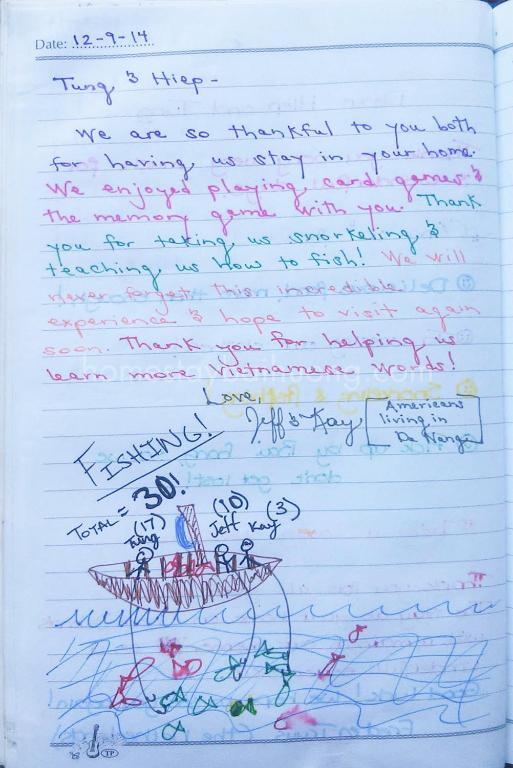 Date: 12-9-14
Tung & Hiep -
We are so thankful to you both
for having us stay in your home.
We enjoyed playing card games &
the memory game with you. Thank
you for taking us snorkeling &
teaching us how to fish! We will
never forget this incredible
experience & hope to visit again
soon. Thank you for helping us
learn more Vietnamese words!
Love,
Jeff & Kay
Americans
living in
Da Nang
FISHING!
TOTAL = 30!
(17) (10) (3)
Tung Jeff Kay
TP